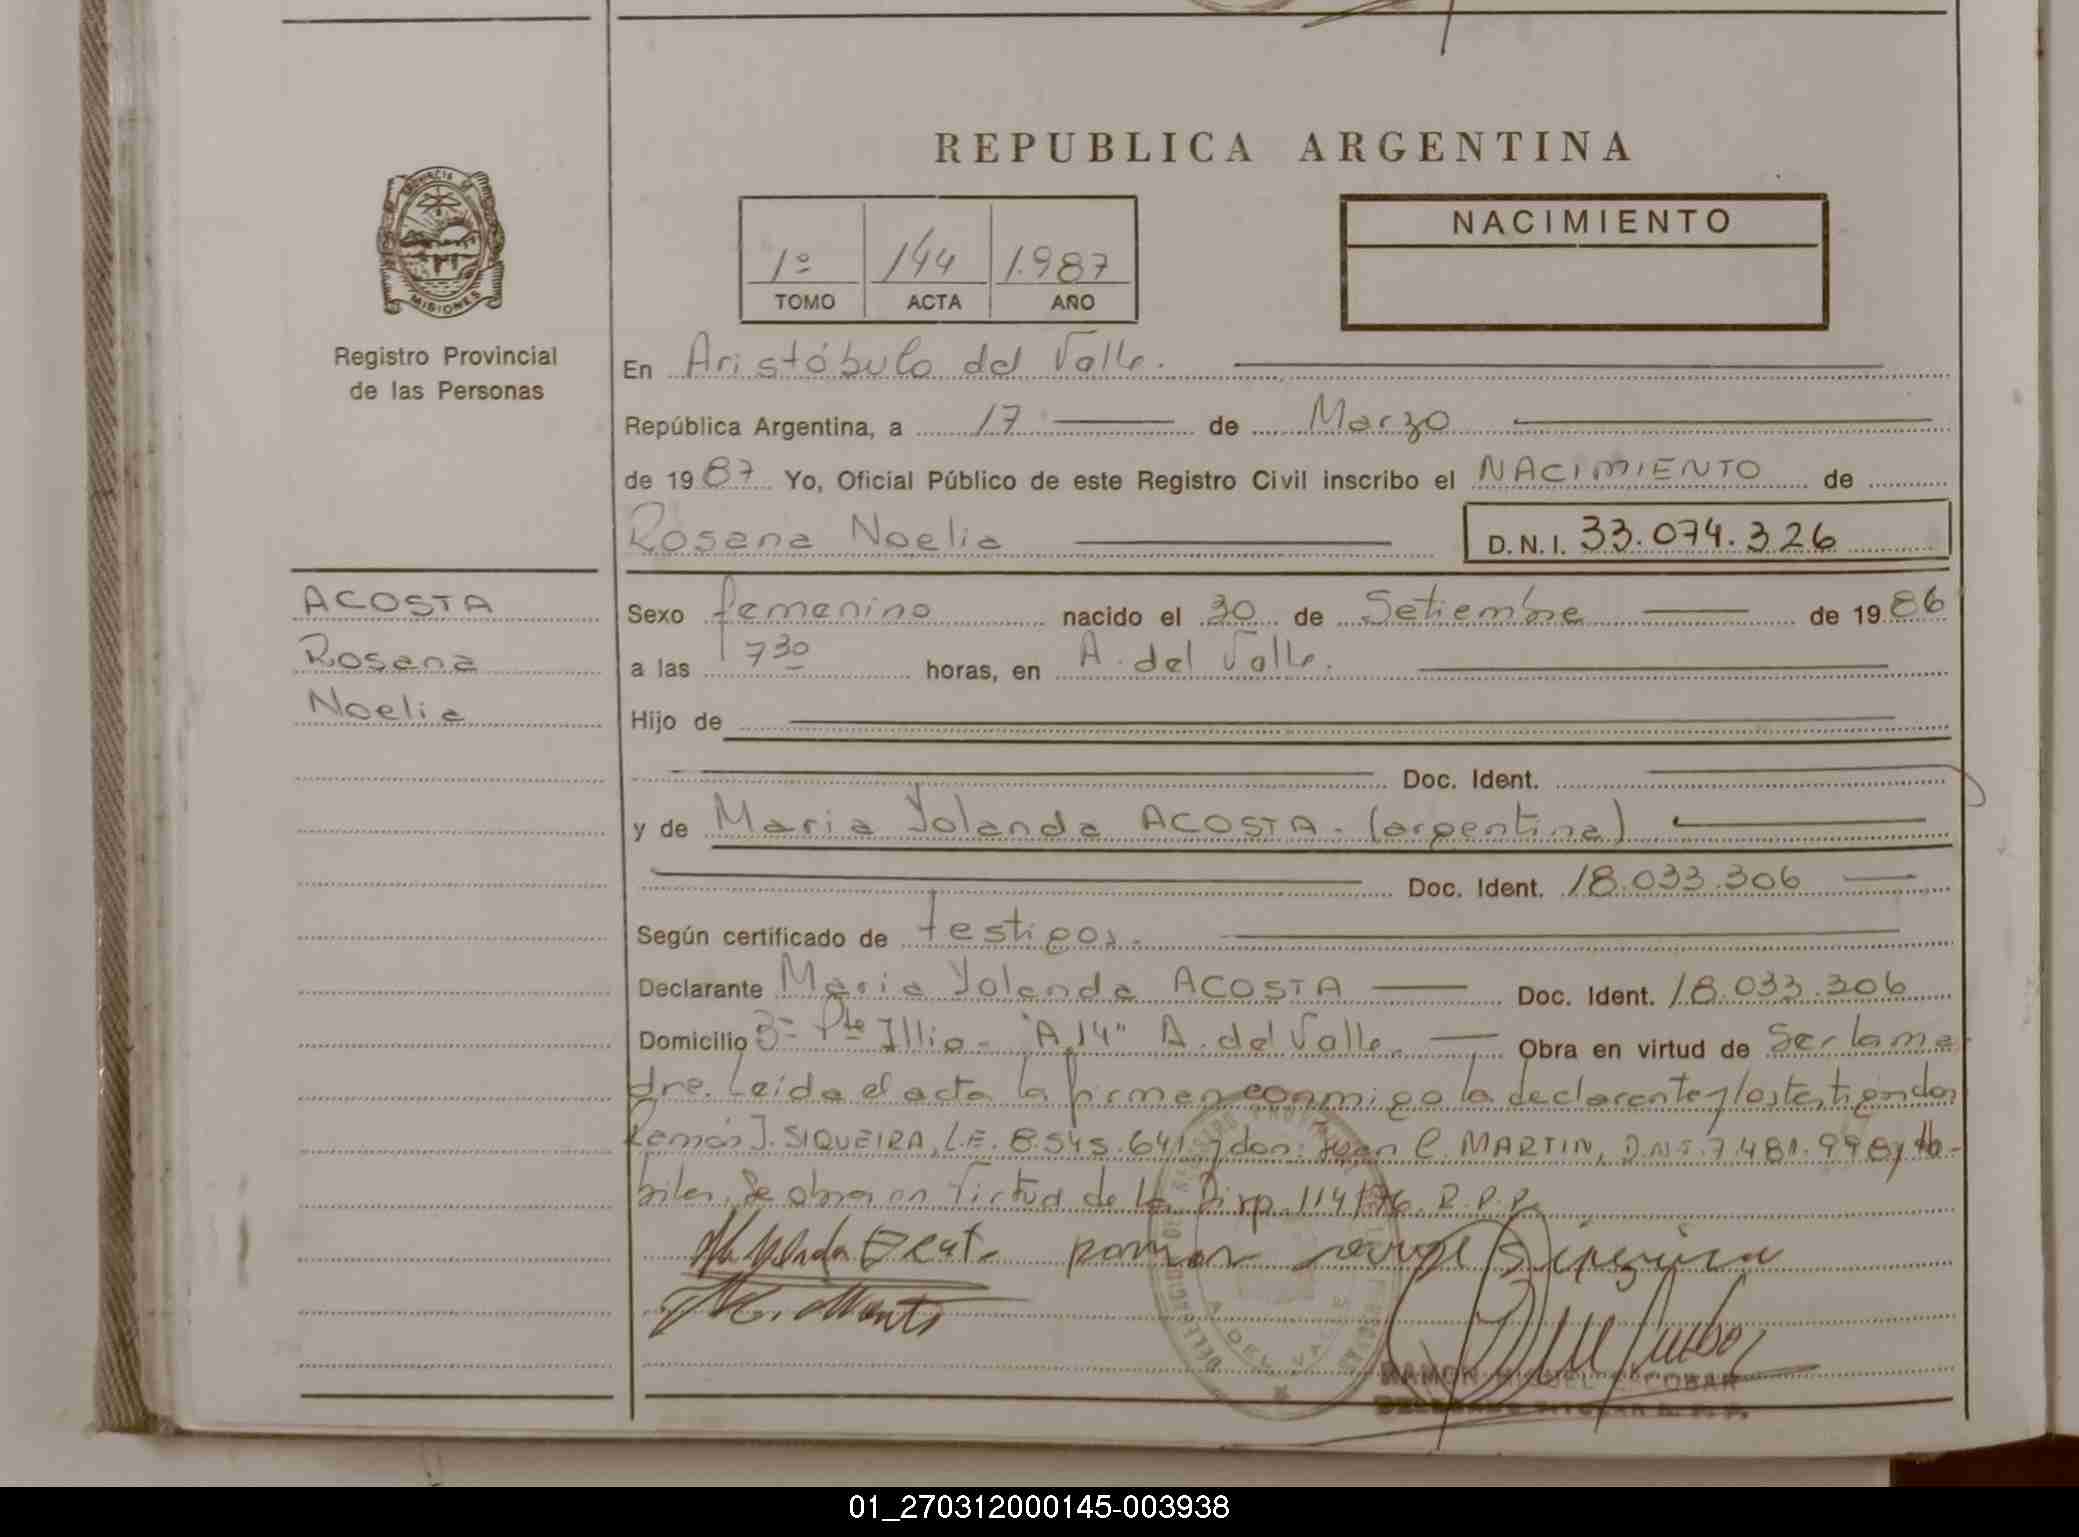 REPUBLICA ARGENTINA
PROVINCIA DE
MISIONES
Registro Provincial
de las Personas
1º 144 1.987
TOMO ACTA AÑO
NACIMIENTO
En Aristóbulo del Valle.
República Argentina, a 17 de Marzo
de 1987 Yo, Oficial Público de este Registro Civil inscribo el NACIMIENTO de
Rosana Noelia D.N.I. 33.074.326
ACOSTA
Rosana
Noelia
Sexo femenino nacido el 30 de Setiembre de 1986
a las 7 30 horas, en A. del Valle.
Hijo de
Doc. Ident.
y de Maria Yolanda ACOSTA. (argentina)
Doc. Ident. 18.033.306
Según certificado de testigos.
Declarante Maria Yolanda ACOSTA Doc. Ident. 18.033.306
Domicilio Bº Pte Illia - "A 14" A. del Valle. Obra en virtud de Ser la ma
dre. Leida el acta la firman conmigo la declarante y los testigos don
Ramón J. SIQUEIRA, L.E. 8.545.641 y don: Juan C. MARTIN, D.N.I. 7.481.998 y há-
biles. Se obra en virtud de la Disp. 114/76. R.P.P.
A. DEL VALLE
RAMON MIGUEL ESCOBAR
01_270312000145-003938